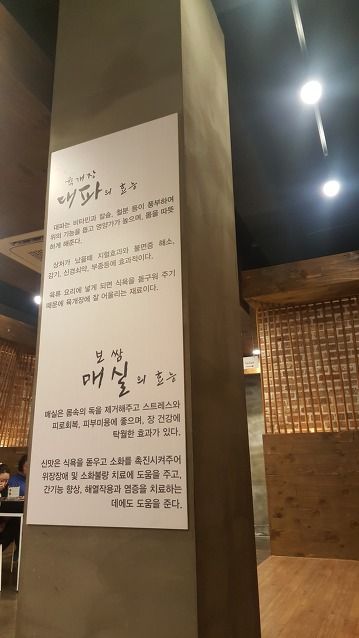 육개장
대파의 효능
대파는 비타민과 칼슘, 철분 등이 풍부하여
위의 기능을 돕고 영양가가 높으며, 몸을 따뜻
하게 해준다.
상처가 났을때 지혈효과와 불면증 해소,
감기, 신경쇠약, 부종등에 효과적이다.
육류 요리에 넣게 되면 식욕을 돋구워 주기
때문에 육개장에 잘 어울리는 재료이다.
보쌈
매실의 효능
매실은 몸속의 독을 제거해주고 스트레스와
피로회복, 피부미용에 좋으며, 장 건강에
탁월한 효과가 있다.
신맛은 식욕을 돋우고 소화를 촉진시켜주어
위장장애 및 소화불량 치료에 도움을 주고,
간기능 향상, 해열작용과 염증을 치료하는
데에도 도움을 준다.